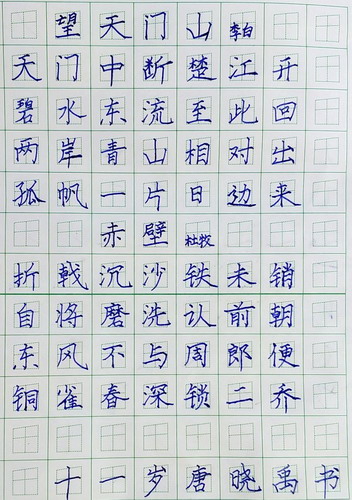 望天门山 李白
天门中断楚江开
碧水东流至此回
两岸青山相对出
孤帆一片日边来
赤壁 杜牧
折戟沉沙铁未销
自将磨洗认前朝
东风不与周郎便
铜雀春深锁二乔
十一岁唐晓禹书